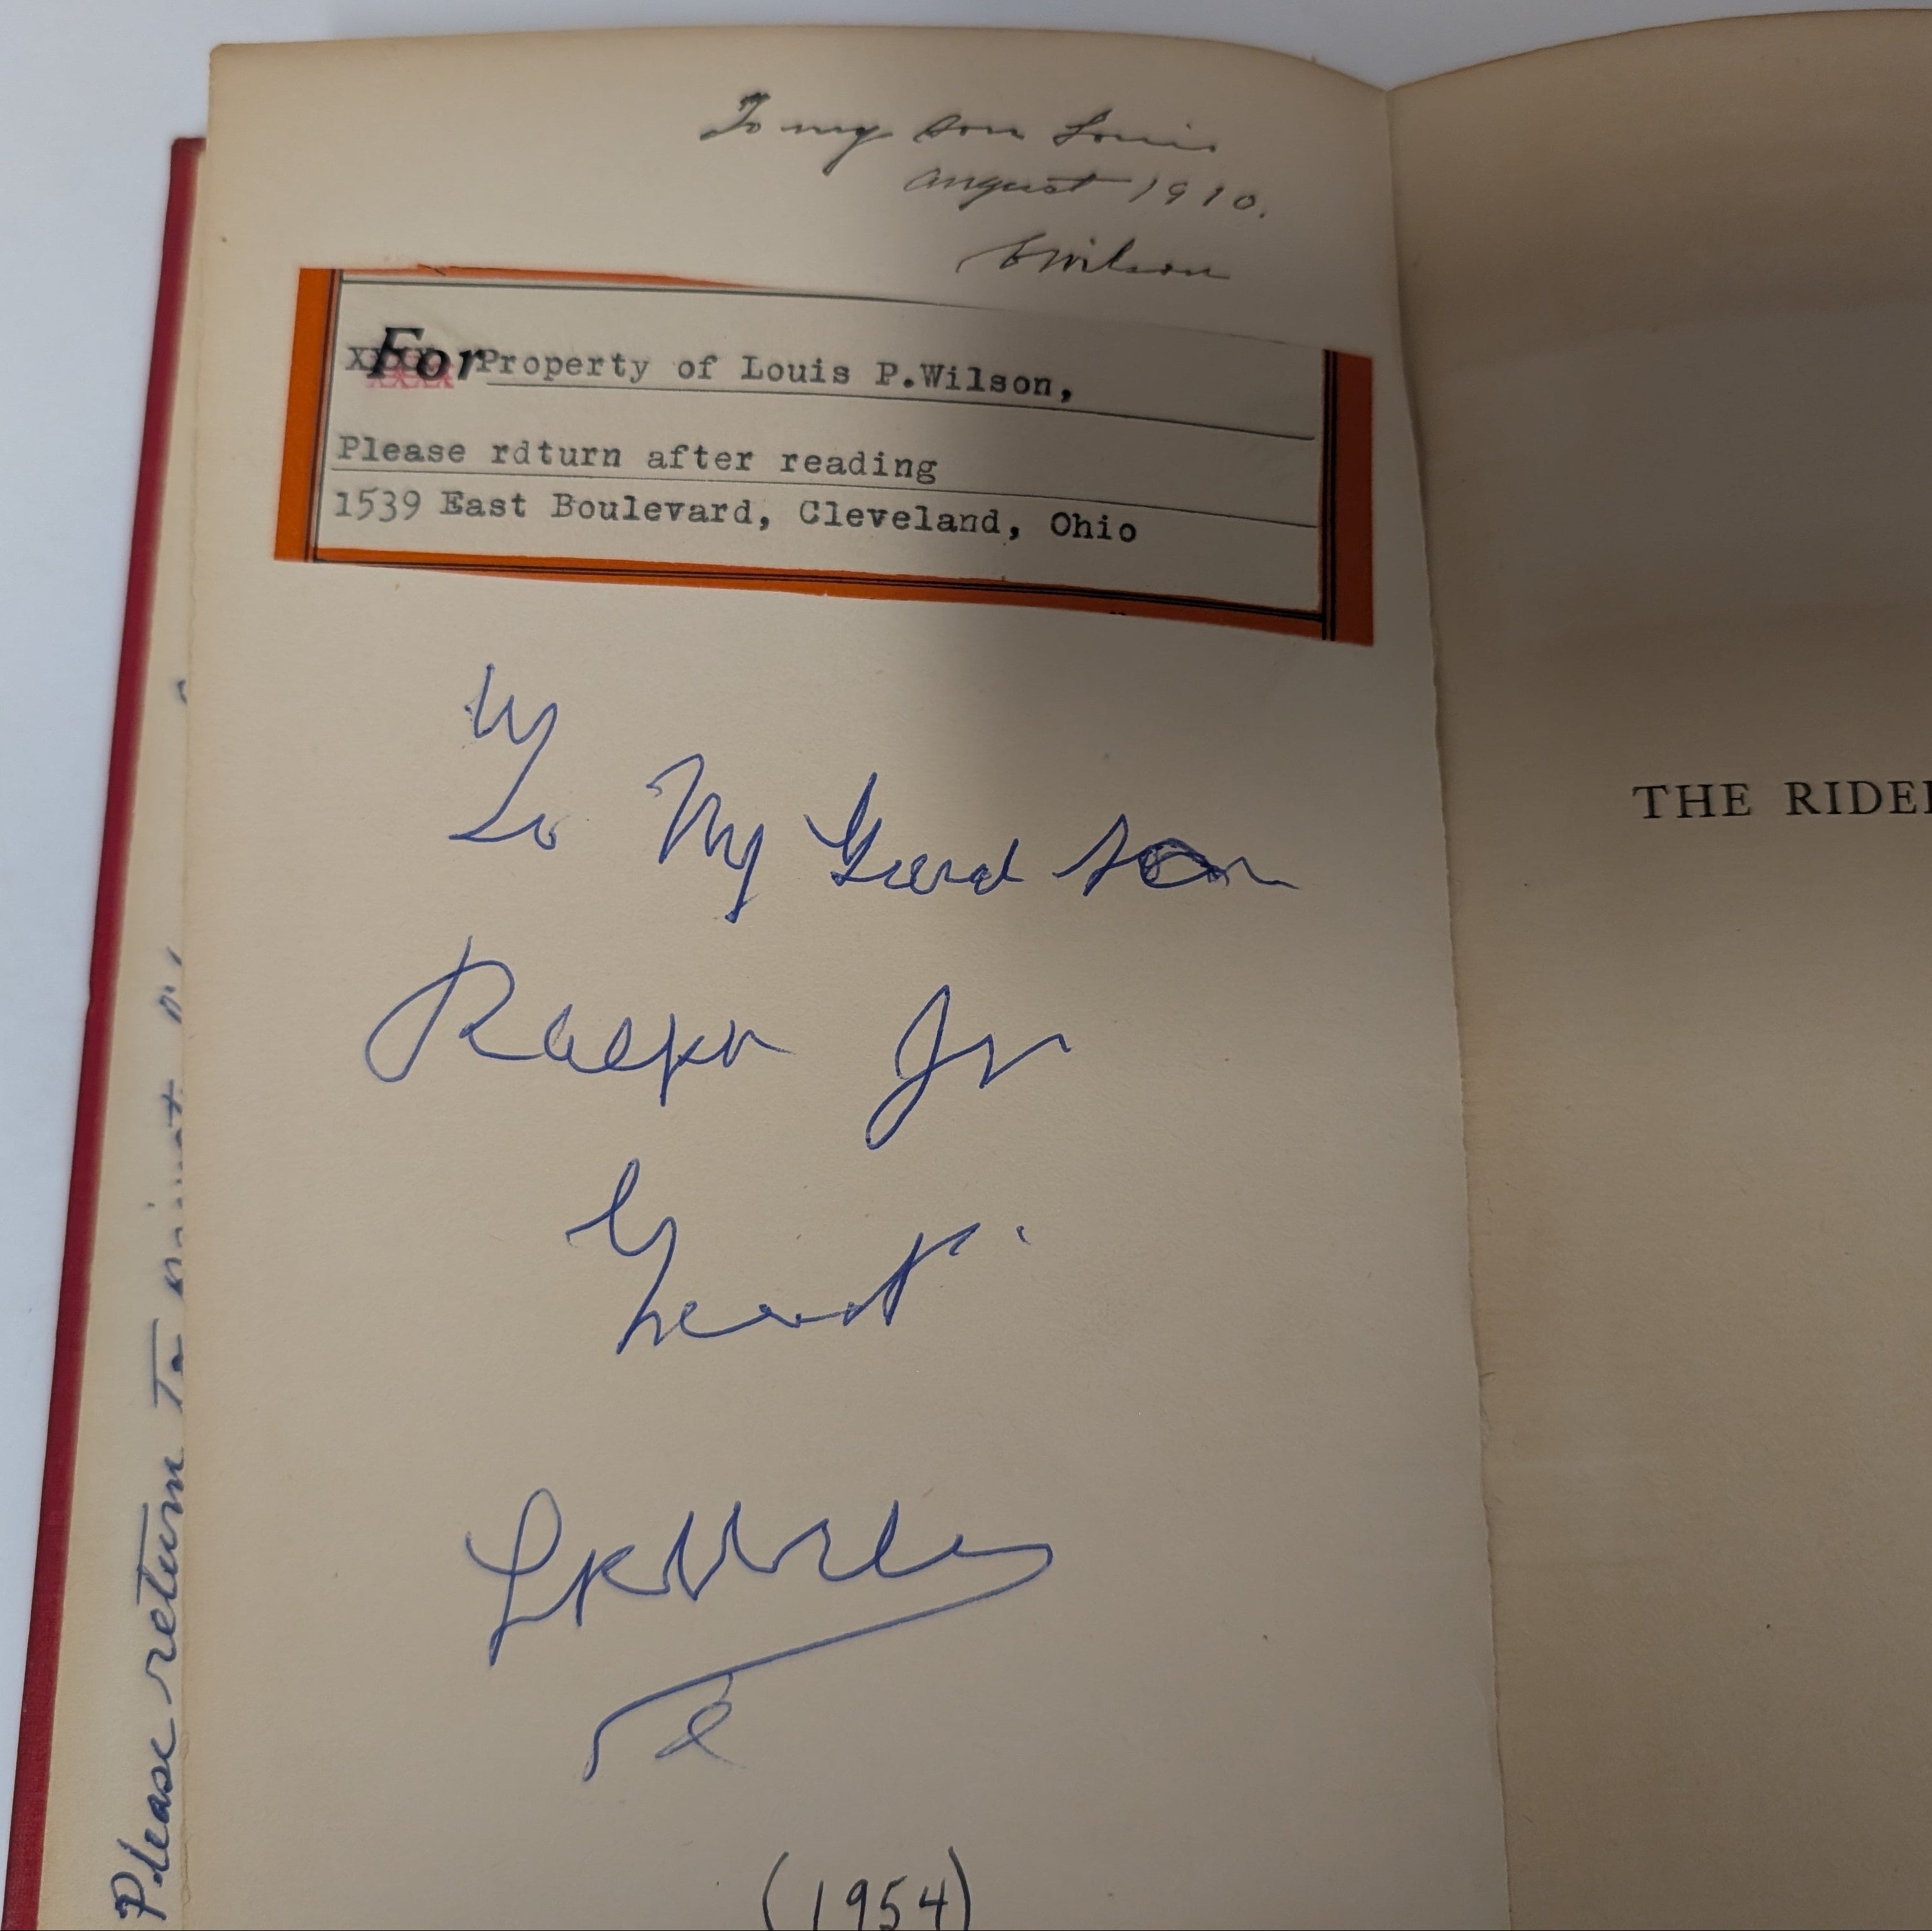 To my son Louis
August 1910.
Wilson
For Property of Louis P.Wilson,
Please rdturn after reading
1539 East Boulevard, Cleveland, Ohio
To My Grand son
Ralph Jr
(1954)
Please return To
THE RIDE